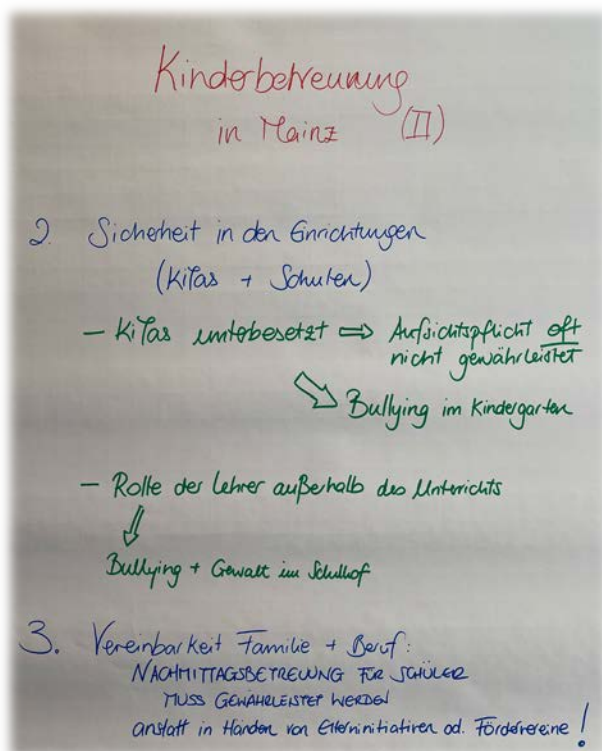 Kinderbetreuung
in Mainz (II)
2. Sicherheit in den Einrichtungen
(KiTas + Schulen)
- KiTas unterbesetzt ⇒ Aufsichtspflicht oft
nicht gewährleistet
⇘ Bullying im Kindergarten
- Rolle der Lehrer außerhalb des Unterrichts
⇓
Bullying + Gewalt im Schulhof
3. Vereinbarkeit Familie + Beruf:
NACHMITTAGSBETREUUNG FÜR SCHÜLER
MUSS GEWÄHRLEISTET WERDEN
anstatt in Händen von Elterninitiativen od. Fördervereine!